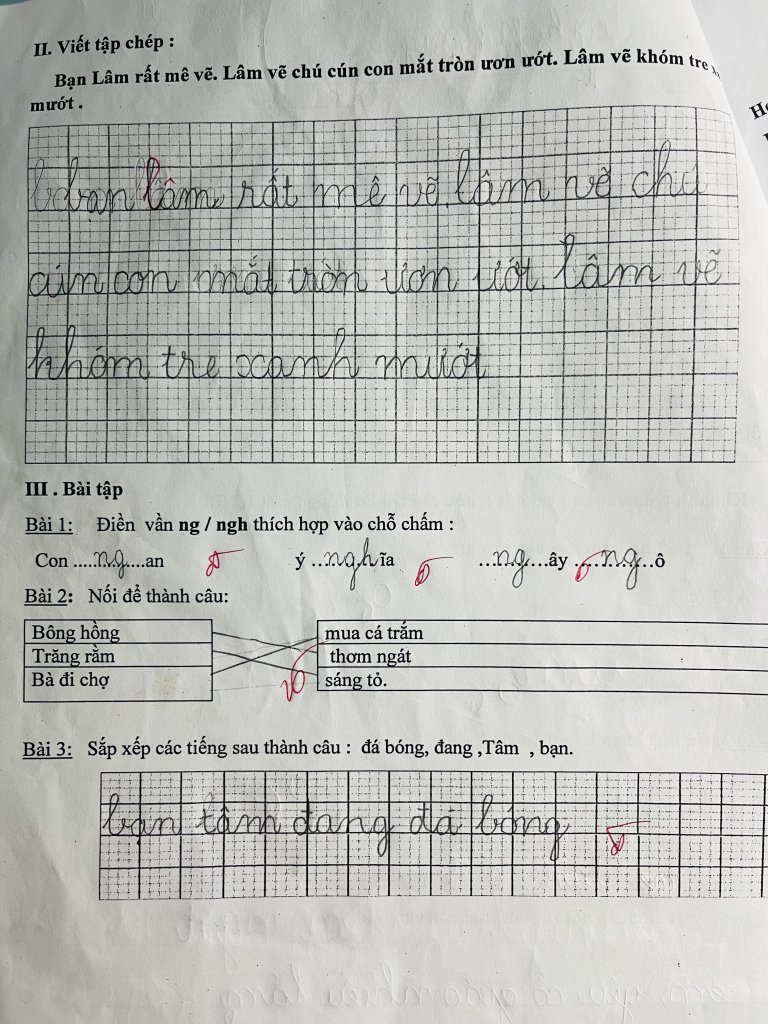 II. Viết tập chép :
Bạn Lâm rất mê vẽ. Lâm vẽ chú cún con mắt tròn ươn ướt. Lâm vẽ khóm tre
mướt .
lâm rất mê vẽ. lâm vẽ chú
cún con mắt tròn ươn ướt. lâm vẽ
khóm tre xanh mướt
III . Bài tập
Bài 1: Điền vần ng / ngh thích hợp vào chỗ chấm :
Con .....ng....an ý ..nghĩa ...ng...ây ....ng...ô
Bài 2: Nối để thành câu:
Bông hồng mua cá trắm
Trăng rằm thơm ngát
Bà đi chợ sáng tỏ.
Bài 3: Sắp xếp các tiếng sau thành câu : đá bóng, đang ,Tâm , bạn.
bạn tâm đang đá bóng